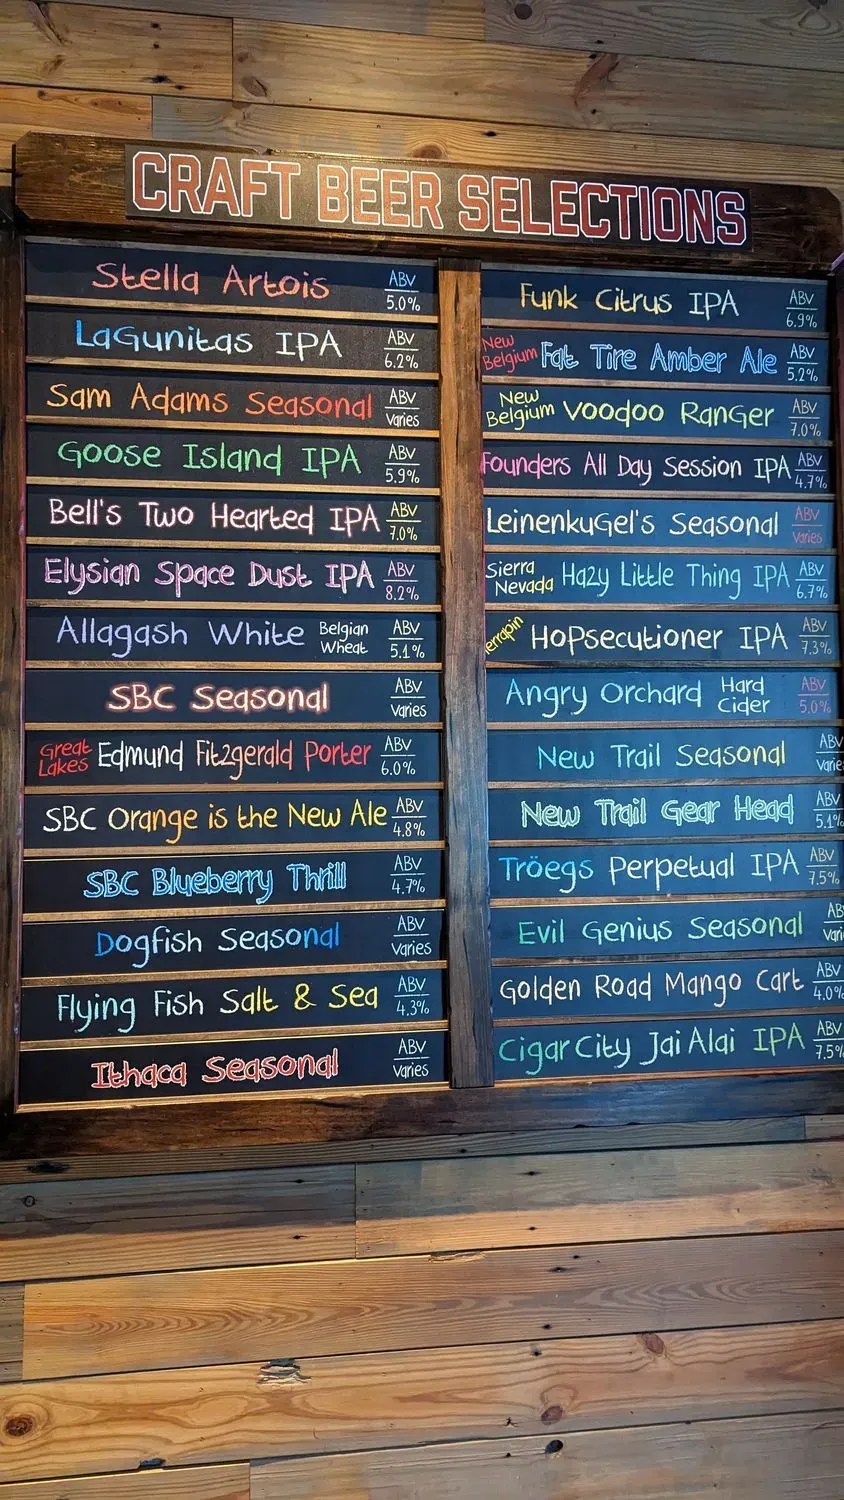 CRAFT BEER SELECTIONS
Stella Artois ABV 5.0%
Lagunitas IPA ABV 6.2%
Sam Adams Seasonal ABV Varies
Goose Island IPA ABV 5.9%
Bell's Two Hearted IPA ABV 7.0%
Elysian Space Dust IPA ABV 8.2%
Allagash White Belgian Wheat ABV 5.1%
SBC Seasonal ABV Varies
Great Lakes Edmund Fitzgerald Porter ABV 6.0%
SBC Orange is the New Ale ABV 4.8%
SBC Blueberry Thrill ABV 4.7%
Dogfish Seasonal ABV Varies
Flying Fish Salt & Sea ABV 4.3%
Ithaca Seasonal ABV Varies
Funk Citrus IPA ABV 6.9%
New Belgium Fat Tire Amber Ale ABV 5.2%
New Belgium Voodoo Ranger ABV 7.0%
Founders All Day Session IPA ABV 4.7%
Leinenkugel's Seasonal ABV Varies
Sierra Nevada Hazy Little Thing IPA ABV 6.7%
errapin Hopsecutioner IPA ABV 7.3%
Angry Orchard Hard Cider ABV 5.0%
New Trail Seasonal ABV Varie
New Trail Gear Head ABV 5.1%
Tröegs Perpetual IPA ABV 7.5%
Evil Genius Seasonal AB Vari
Golden Road Mango Cart ABV 4.0%
Cigar City Jai Alai IPA ABV 7.5%